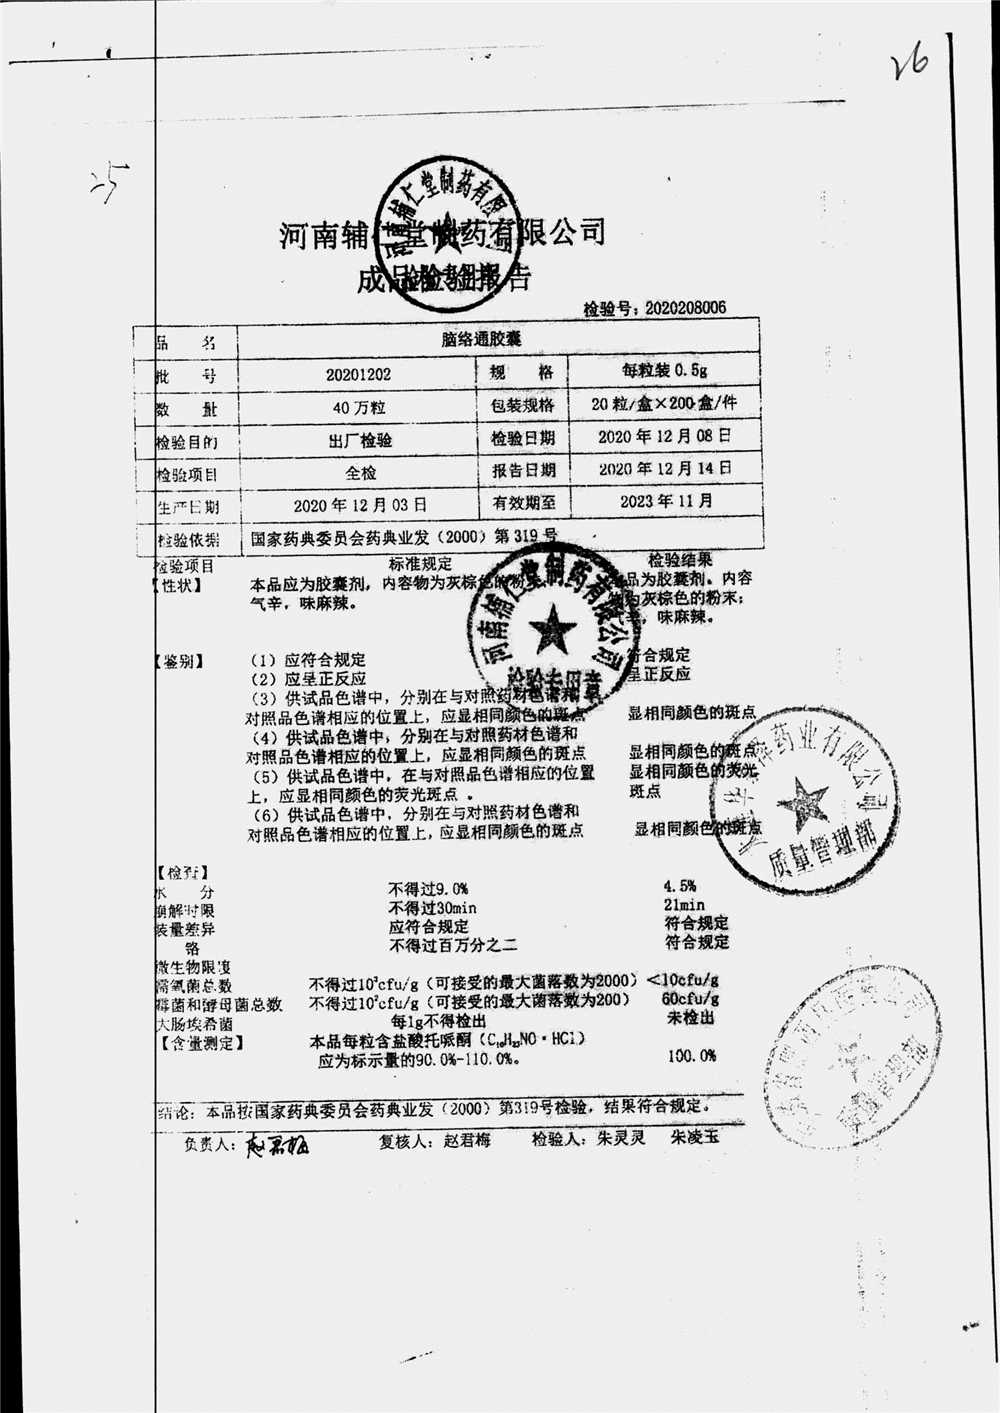 26
25
河南辅仁堂制药有限公司
成品检验报告
检验号：2020208006
品 名 脑络通胶囊
批 号 20201202 规 格 每粒装0.5g
数 量 40万粒 包装规格 20粒/盒×200盒/件
检验目的 出厂检验 检验日期 2020年12月08日
检验项目 全检 报告日期 2020年12月14日
生产日期 2020年12月03日 有效期至 2023年11月
检验依据 国家药典委员会药典业发（2000）第319号
检验项目 标准规定 检验结果
【性状】 本品应为胶囊剂，内容物为灰棕色的粉末； 本品为胶囊剂。内容
气辛，味麻辣。 物为灰棕色的粉末；
气辛，味麻辣。
【鉴别】 （1）应符合规定 符合规定
（2）应呈正反应 呈正反应
（3）供试品色谱中，分别在与对照药材色谱和
对照品色谱相应的位置上，应显相同颜色的斑点 显相同颜色的斑点
（4）供试品色谱中，分别在与对照药材色谱和
对照品色谱相应的位置上，应显相同颜色的斑点 显相同颜色的斑点
（5）供试品色谱中，在与对照品色谱相应的位置 显相同颜色的荧光
上，应显相同颜色的荧光斑点 。 斑点
（6）供试品色谱中，分别在与对照药材色谱和
对照品色谱相应的位置上，应显相同颜色的斑点 显相同颜色的斑点
【检查】
水 分 不得过9.0% 4.5%
崩解时限 不得过30min 21min
装量差异 应符合规定 符合规定
铬 不得过百万分之二 符合规定
微生物限度
需氧菌总数 不得过10³cfu/g（可接受的最大菌落数为2000） <10cfu/g
霉菌和酵母菌总数 不得过10²cfu/g（可接受的最大菌落数为200） 60cfu/g
大肠埃希菌 每1g不得检出 未检出
【含量测定】 本品每粒含盐酸托哌酮（C₁₆H₂₃NO·HCl）
应为标示量的90.0%-110.0%。 100.0%
结论：本品按国家药典委员会药典业发（2000）第319号检验，结果符合规定。
负责人：赵君梅 复核人：赵君梅 检验人：朱灵灵 朱凌玉
河南辅仁堂制药有限公司
检验专用章
河南辅仁堂制药有限公司
检验专用章
药业有限公司
质量管理部